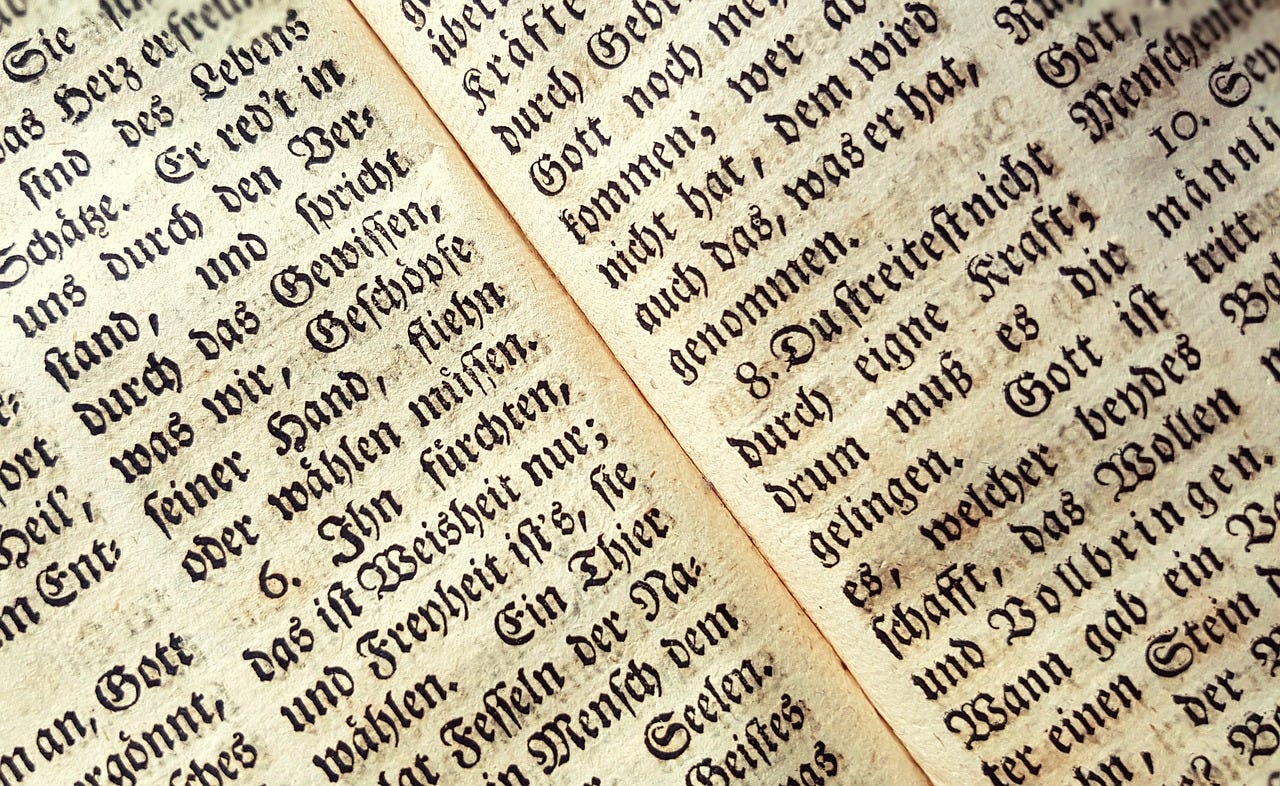 Sie
das Herz erfreun
sind des Lebens
Schåtze. Er red't in
uns durch den Ver⸗
stand, und spricht
durch das Gewissen,
was wir, Geschöpfe
seiner Hand, fliehn
oder wåhlen můssen.
6. Ihn fůrchten,
das ist Weisheit nur;
und Freyheit ist's, sie
wåhlen. Ein Thier
Fesseln der Na⸗
Mensch dem
Seelen.
Geistes
Heil',
Ent⸗
man, Gott
Kråfte
durch
Gott noch
kommen; wer
nicht hat, dem wird
auch das, was er hat,
genommen.
8. Du streitest nicht
durch eigne Kraft;
drum muß es dir
gelingen. Gott ist
es, welcher beydes
schafft, das Wollen
und Vollbringen.
Wann gab ein
einen Stein
der
Gott,
10.
tritt